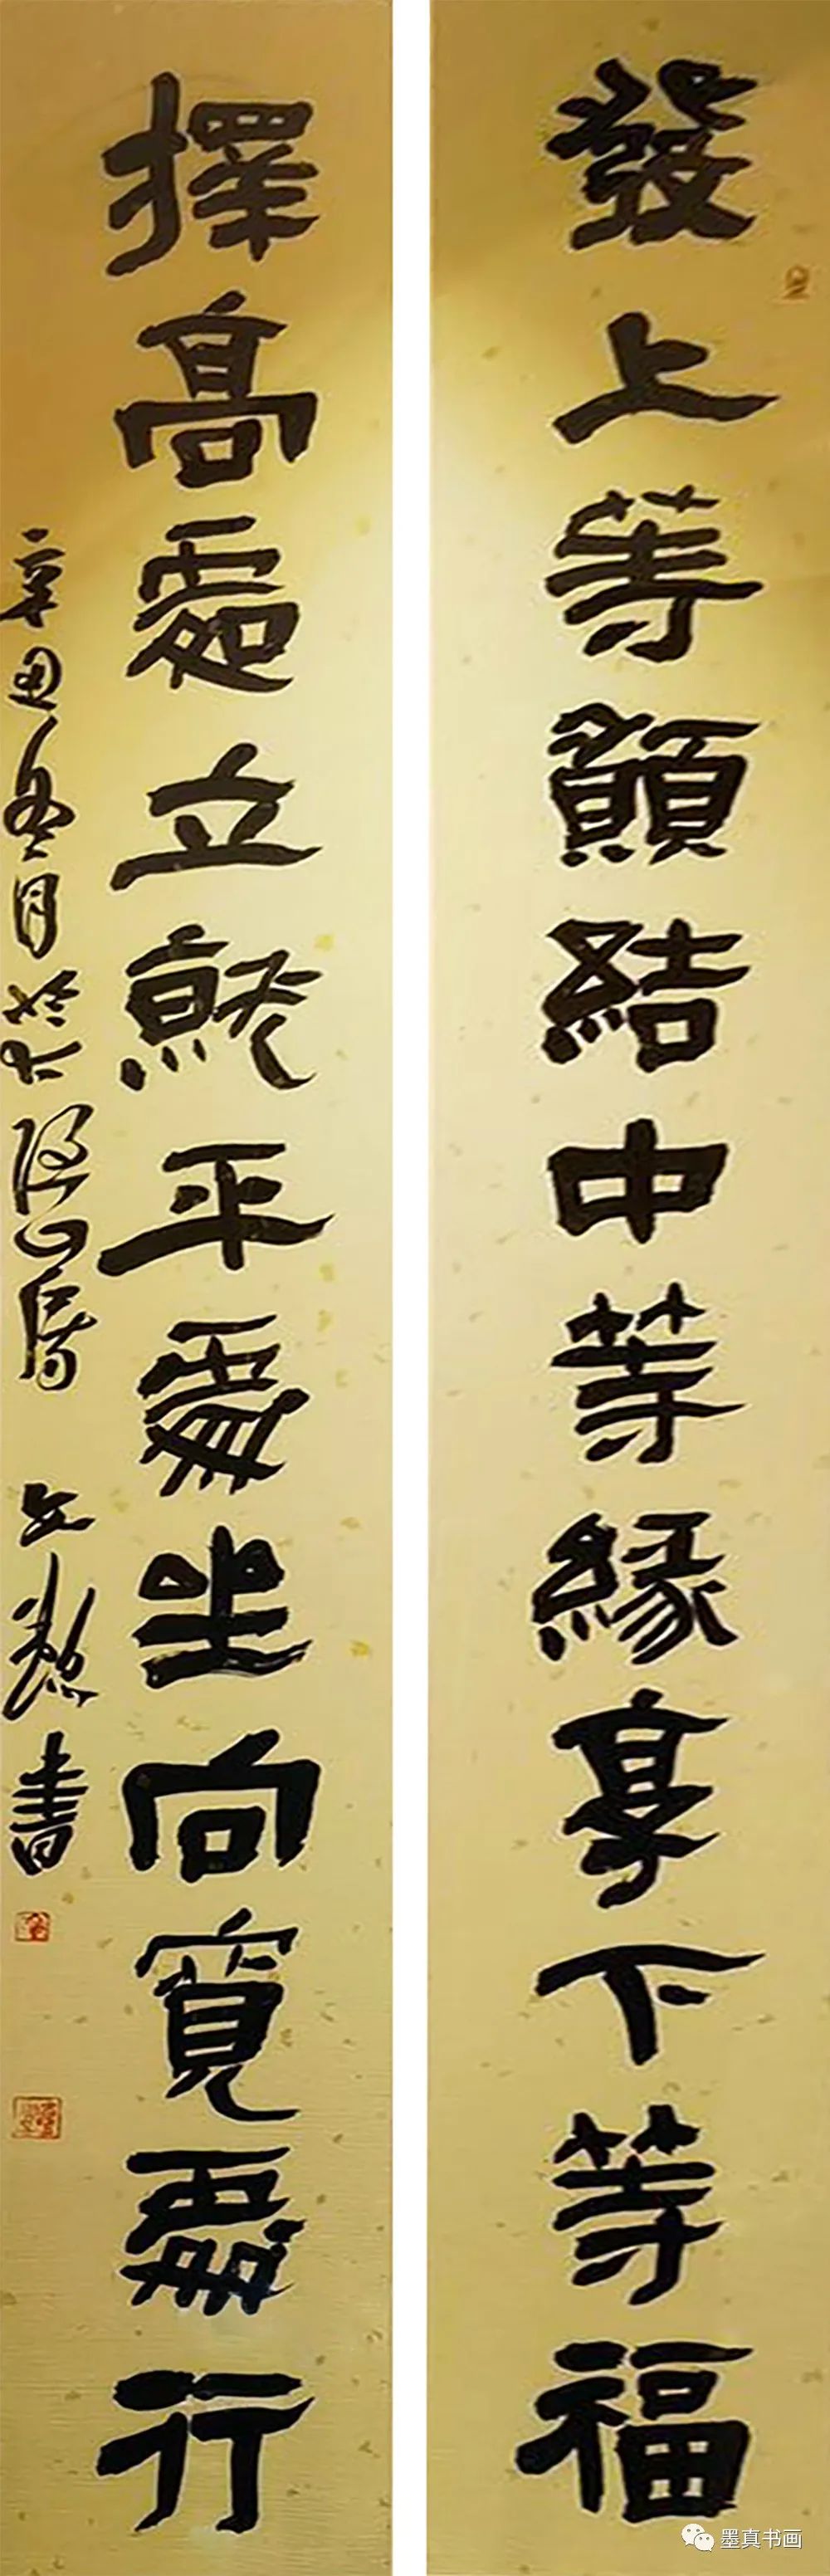 發上等願結中等緣享下等福
擇高處立就平處坐向寬處行
辛丑冬月於大隱山房 文懿書
墨真书画